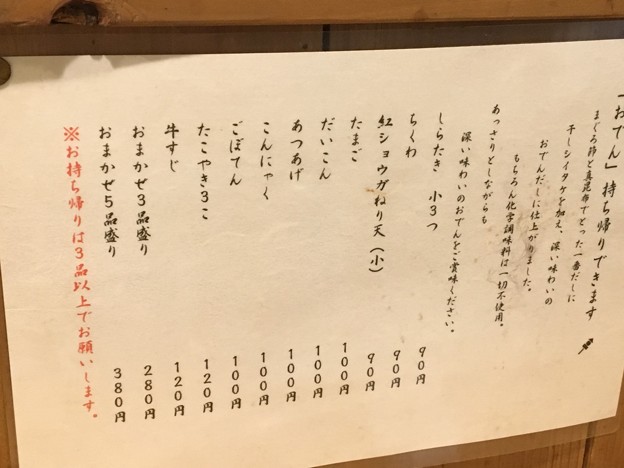 「おでん」持ち帰りできます
まぐろ節と真昆布でとった一番だしに
干しシイタケを加え、深い味わいの
おでんだしに仕上がりました。
もちろん化学調味料は一切不使用。
あっさりとしながらも
深い味わいのおでんをご賞味ください。
しらたき 小3つ 90円
ちくわ 90円
紅ショウガねり天(小) 90円
たまご 100円
だいこん 100円
あつあげ 100円
こんにゃく 100円
ごぼてん 100円
たこやき3こ 120円
牛すじ 120円
おまかせ3品盛り 280円
おまかせ5品盛り 380円
※お持ち帰りは3品以上でお願いします。